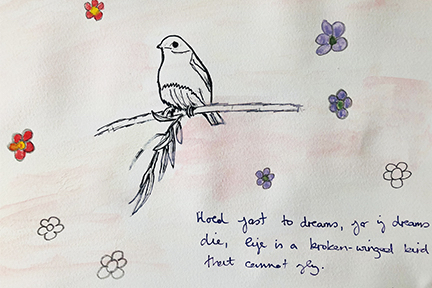 Hold fast to dreams, for if dreams
die, life is a broken-winged bird
that cannot fly.